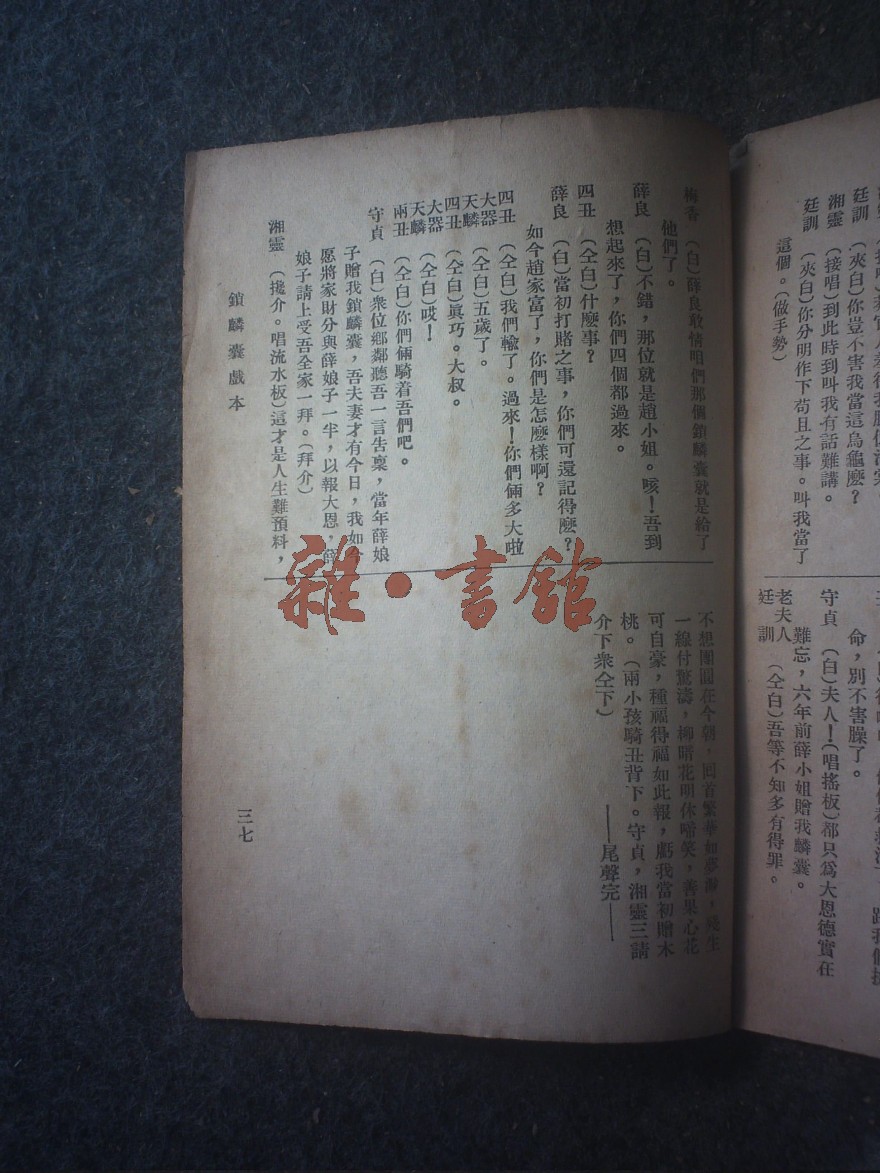 廷訓 (夾白)你豈不害我當這烏龜麼?
湘靈 (接唱)到此時到叫我有話難講。
廷訓 (夾白)你分明作下苟且之事。叫我當了
這個。(做手勢)
命,別不害臊了。
守貞 (白)夫人!(唱搖板)都只爲大恩德實在
難忘,六年前薛小姐贈我麟囊。
老夫人
廷訓 (仝白)吾等不知多有得罪。
梅香 (白)薛良敢情咱們那個鎖麟囊就是給了
他們了。
薛良 (白)不錯,那位就是趙小姐。咳!吾到
想起來了,你們四個都過來。
四丑 (仝白)什麼事?
薛良 (白)當初打賭之事,你們可還記得麼?
如今趙家富了,你們是怎麼樣啊?
四丑 (仝白)我們輸了。過來!你們倆多大啦
大器
天麟 (仝白)五歲了。
四丑 (仝白)眞巧。大叔。
大器
天麟 (仝白)哎!
兩丑 (仝白)你們倆騎着吾們吧。
守貞 (白)衆位鄉鄰聽吾一言告禀,當年薛娘
子贈我鎖麟囊,吾夫妻才有今日,我如今
愿將家財分與薛娘子一半,以報大恩,薛
娘子請上受吾全家一拜。(拜介)
湘靈 (攙介。唱流水板)這才是人生難預料,
不想團圓在今朝,回首繁華如夢渺,殘生
一線付驚濤,柳暗花明休啼笑,善果心花
可自豪,種福得福如此報,虧我當初贈木
桃。(兩小孩騎丑背下。守貞,湘靈三請
介下衆仝下)
——尾聲完——
鎖麟囊戲本
三七
雜·書館